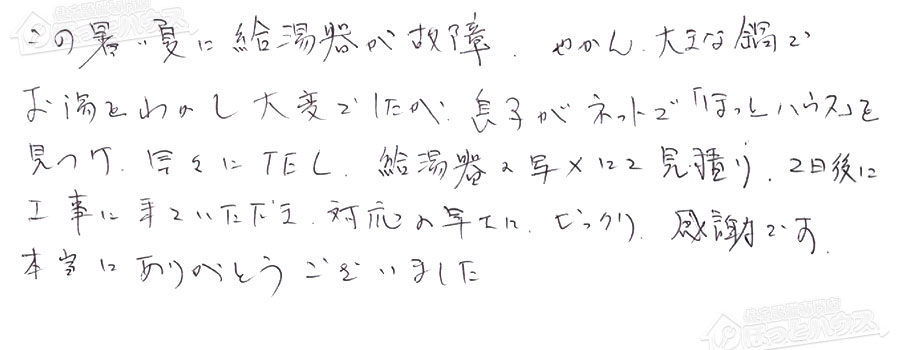 この暑い夏に給湯器が故障、やかん、大きな鍋で
お湯をわかし大変でしたが、息子がネットで「ほっとハウス」を
見つけ、早々にTEL、給湯器の写メにて見積り、2日後に
工事に来ていただき、対応の早さに、びっくり、感謝です。
本当にありがとうございました
住宅設備専門店
ほっとハウス